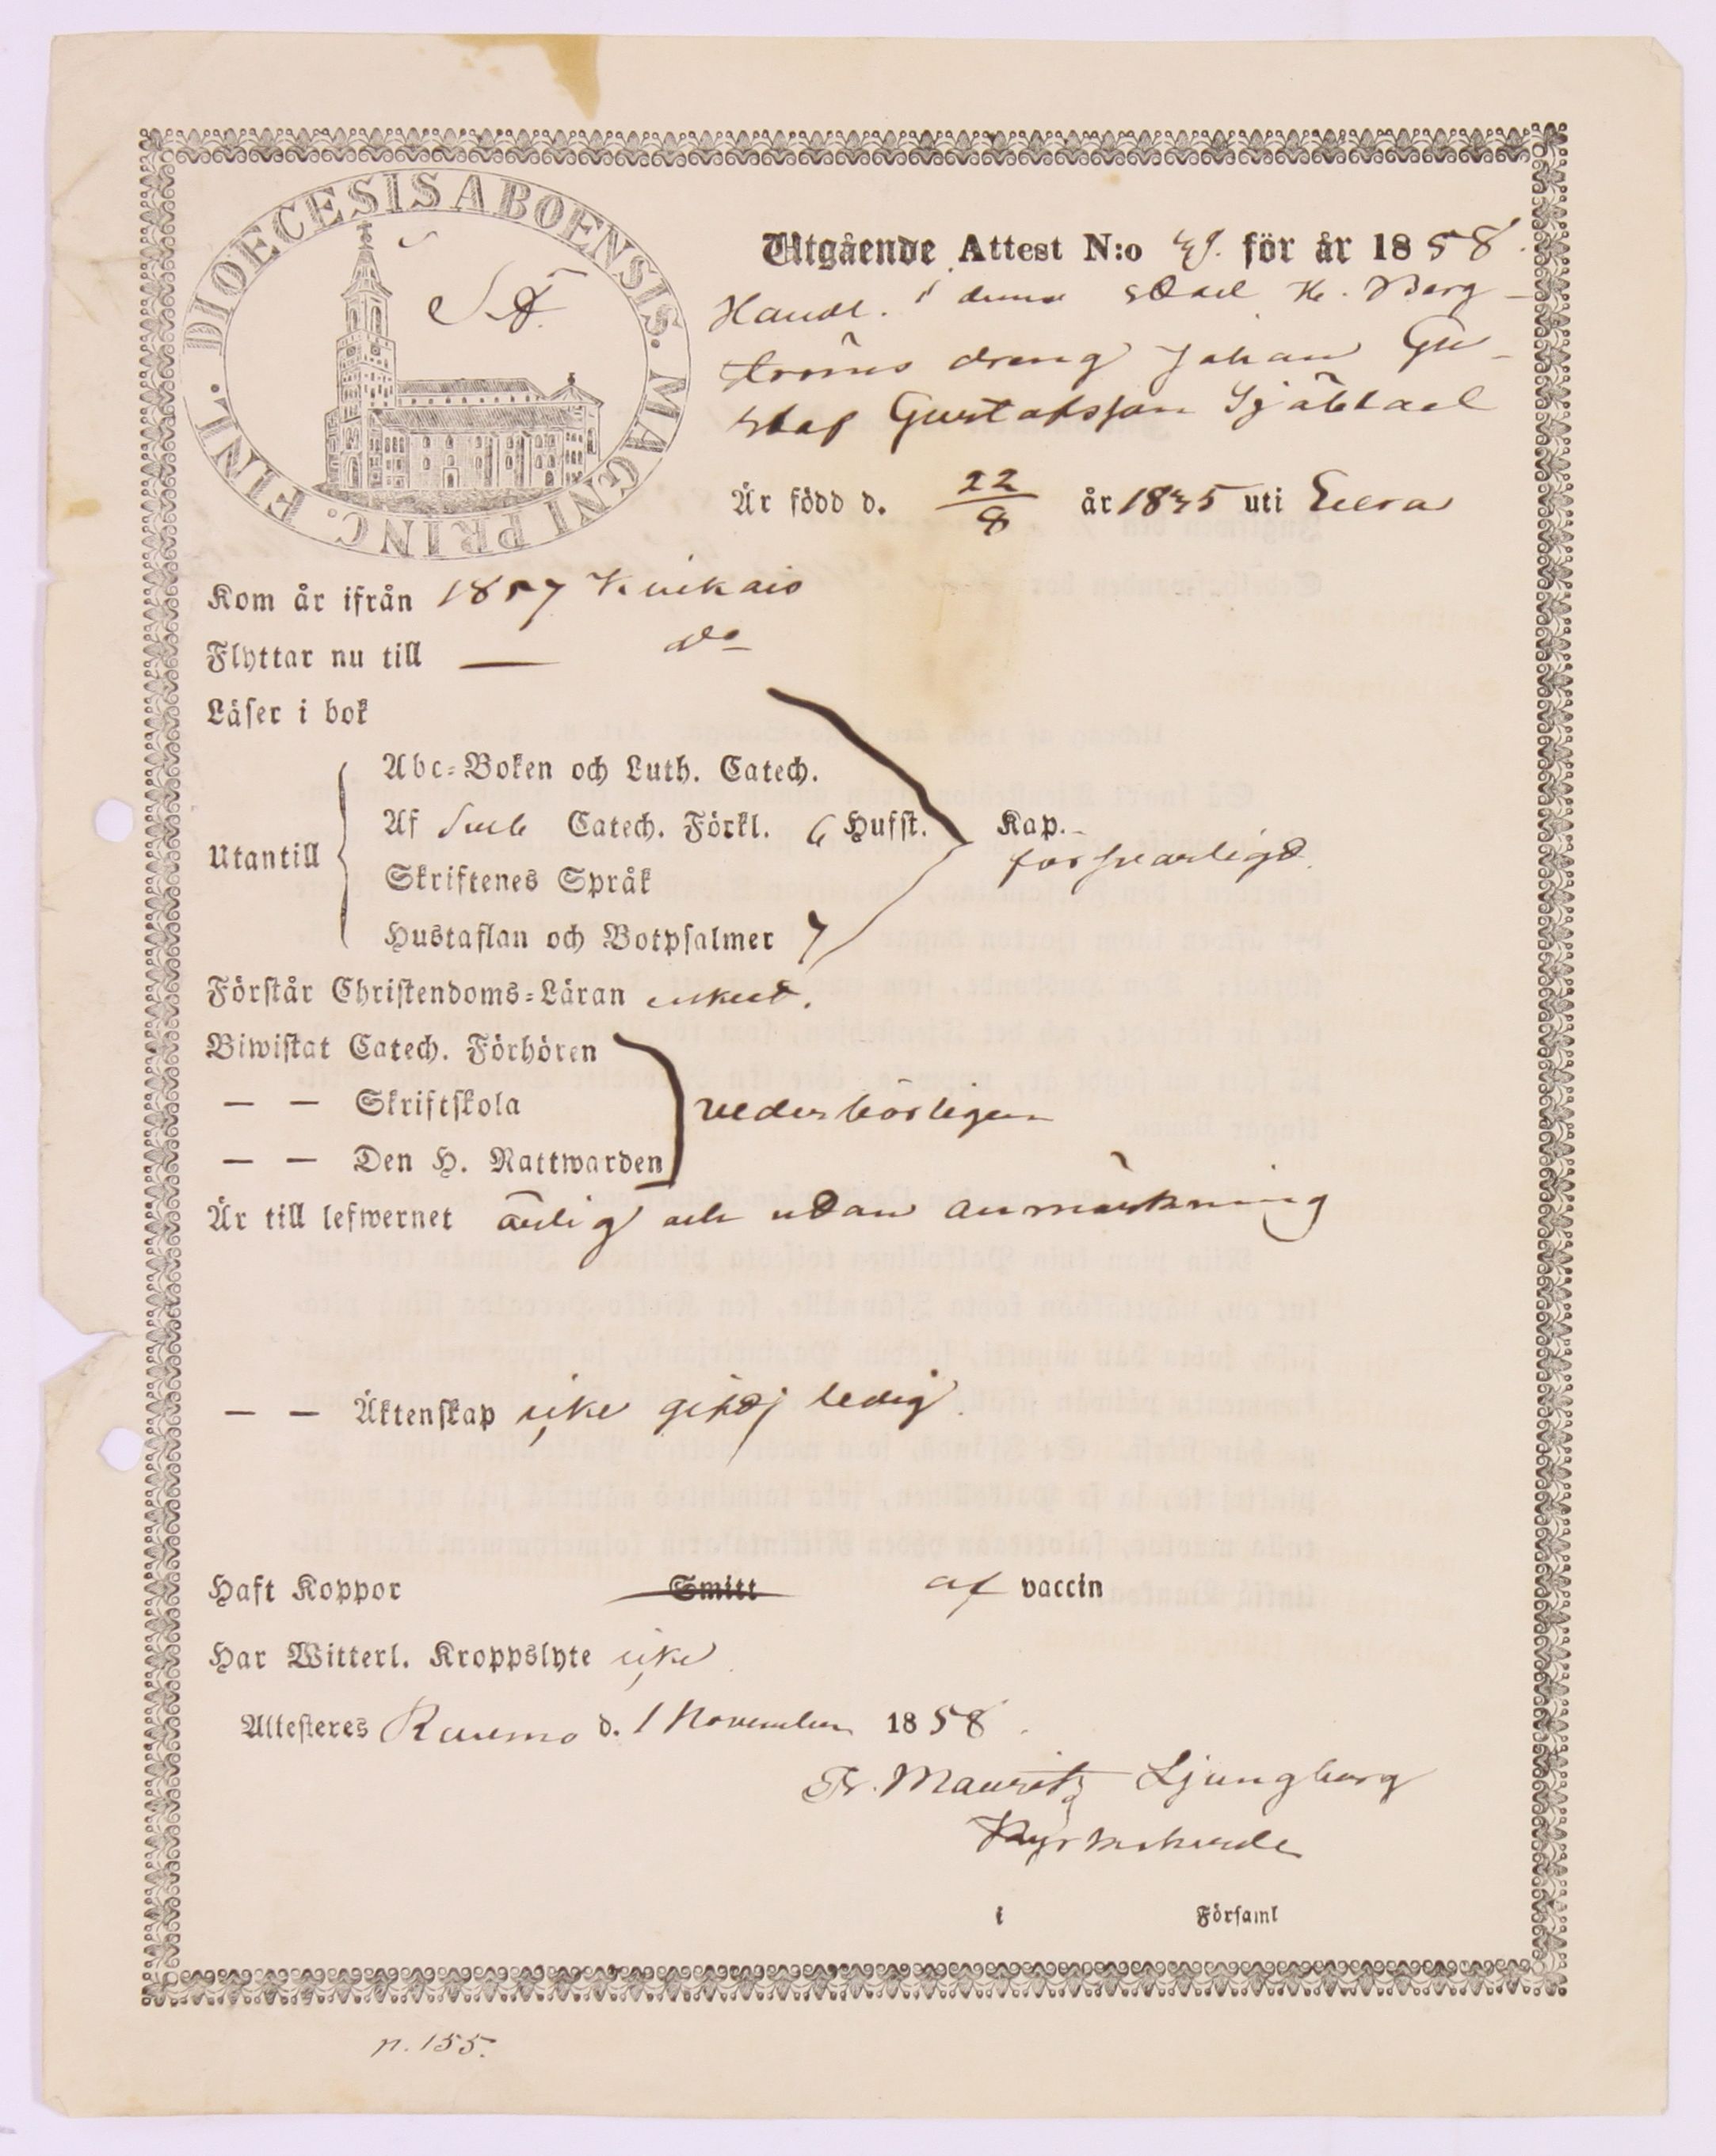 DIOECESIS ABOENSIS. MAGNI PRINC. FINL.
Utgående Attest N:o för år 1858.
Handl. i denna stad H. Berg-
ströms dreng Johan Gu-
staf Gustafsson Sjöblad
Är född d. 22/8 år 1835 uti Eura
Kom år ifrån 1857 Kiukais
Flyttar nu till — do
Läser i bok
Abc-Boken och Luth. Catech.
Utantill
Af Sveb Catech. Förkl. 6 Hufst. Kap.
försvarligt.
Skriftenes Språk
Hustaflan och Botpsalmer 7
Förstår Christendoms-Läran enkelt.
Biwistat Catech. Förhören
— — Skriftskola vederbörligen
— — Den H. Nattwarden
Är till lefwernet ärlig och utan anmärkning
— — Äktenskap icke gift, ledig.
Haft Koppor Smitt af vaccin
Har Witterl. Kroppslyte icke
Attesteres Raumo d. 1 November 1858.
Fr. Mauritz Ljungberg
Kyrkoherde
i Församl
n. 155.